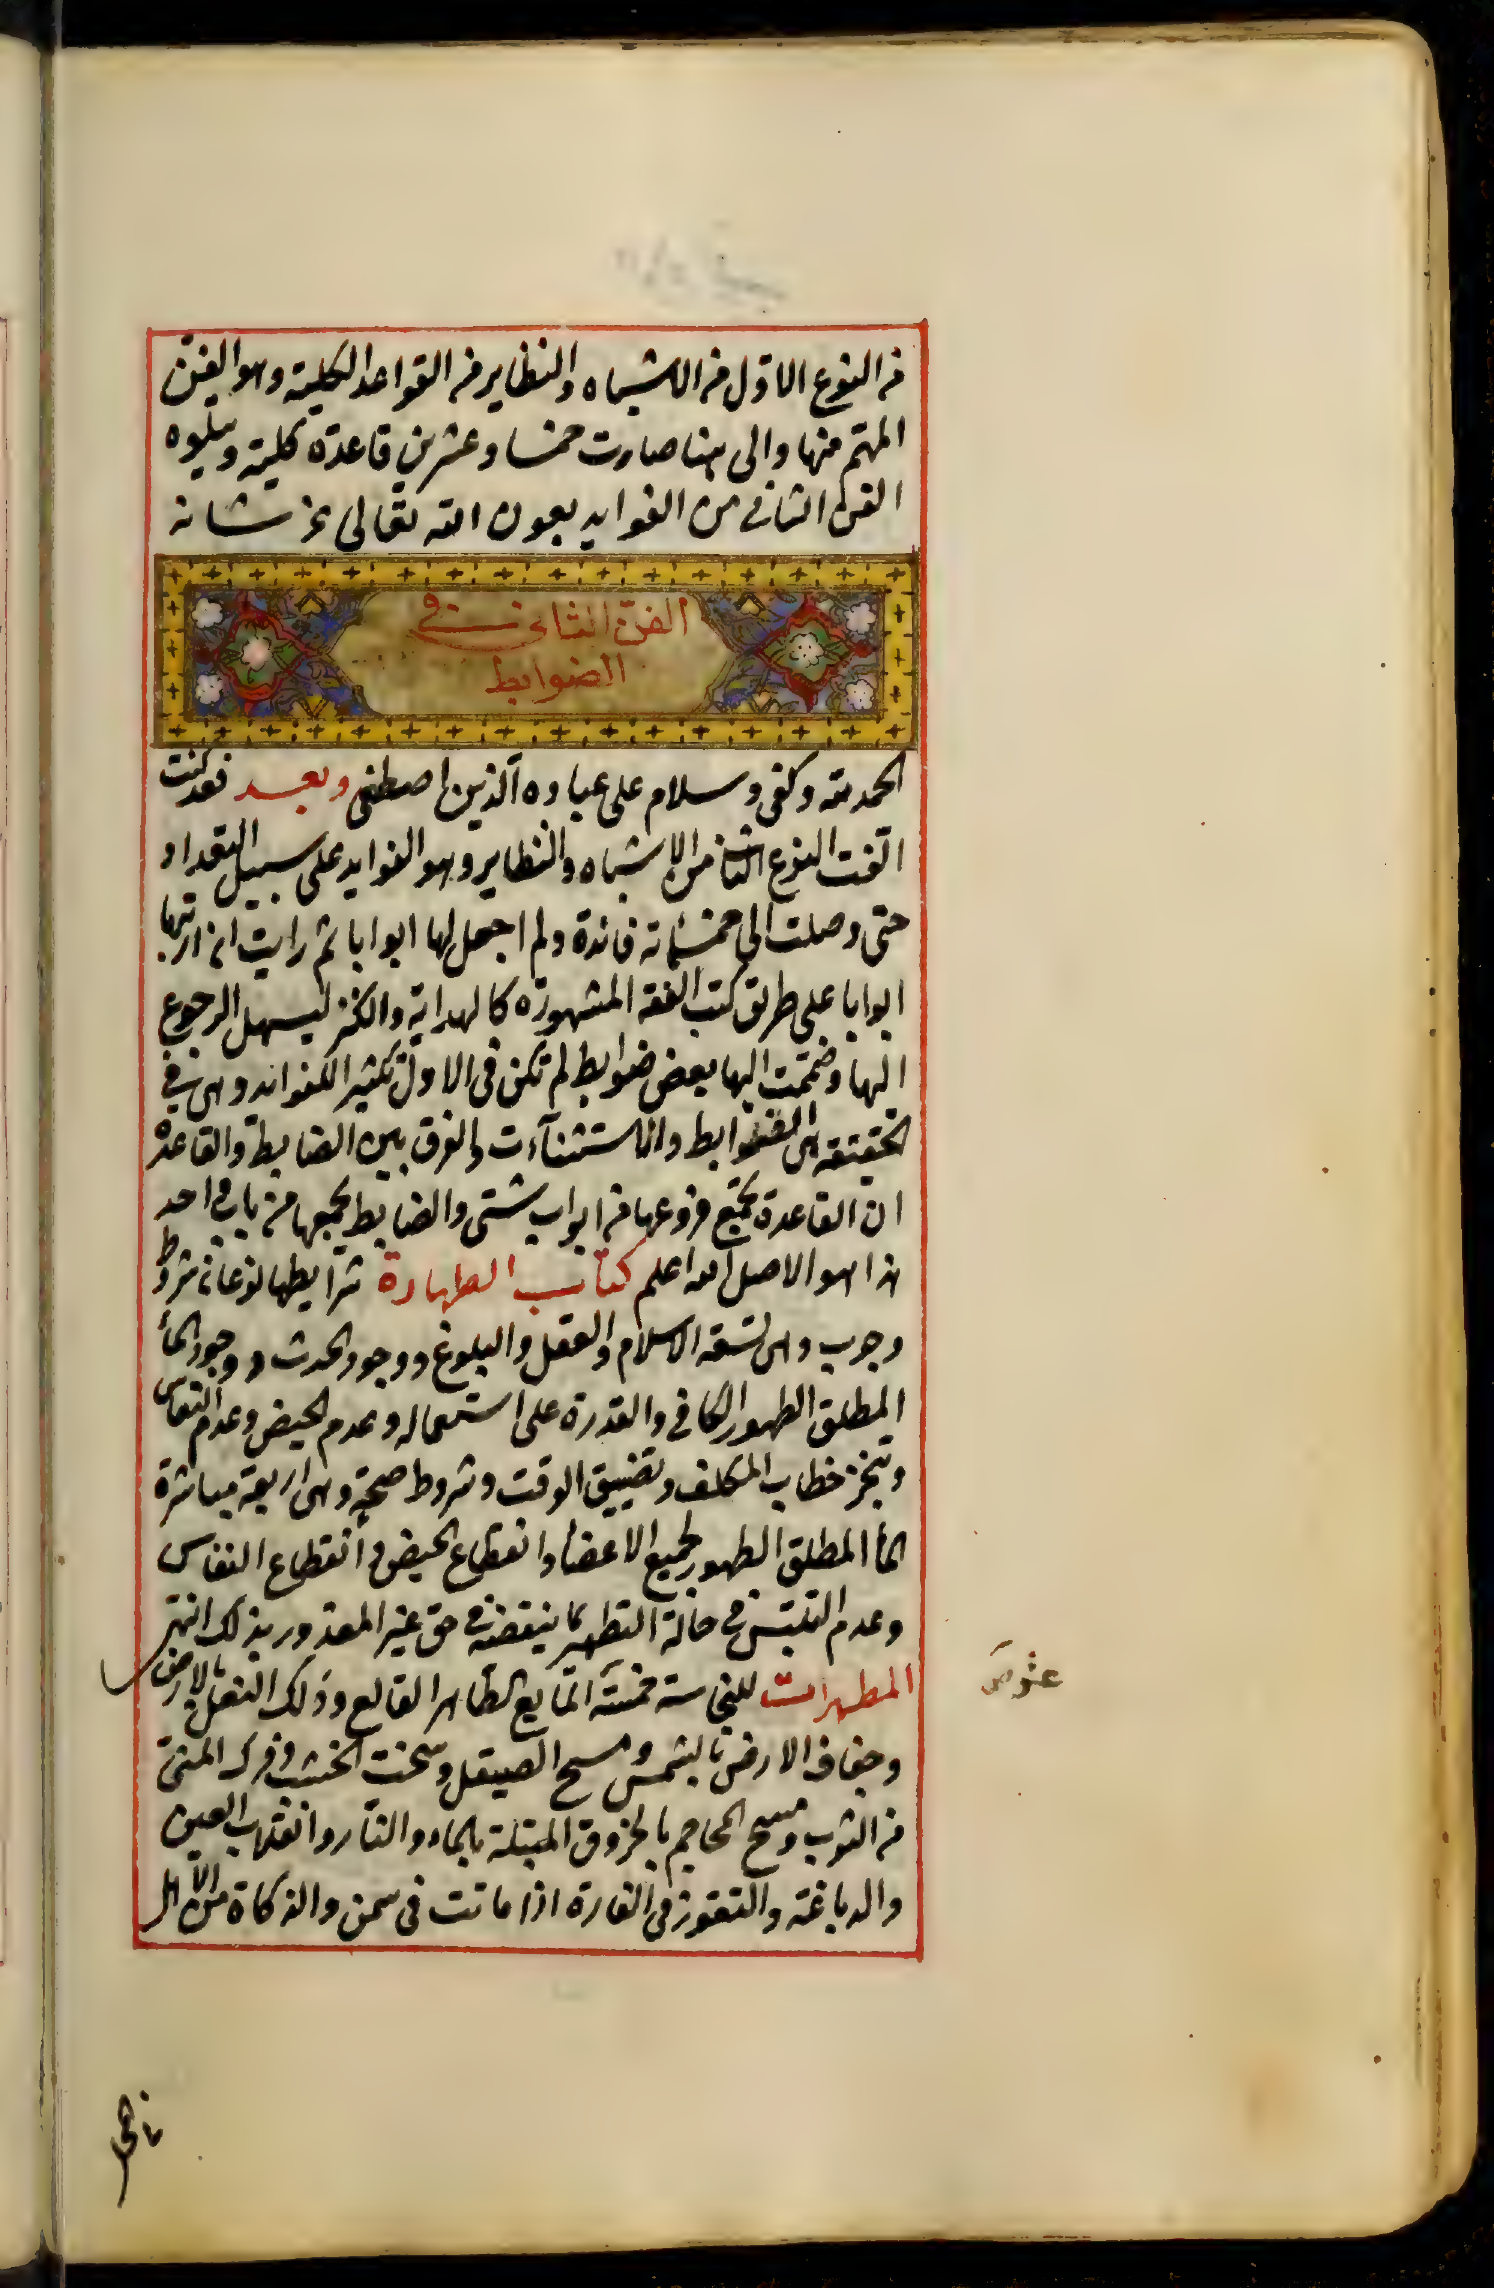 من النوع الاول من الاشباه والنظاير من القواعد الكلية وهو الفن
المهم منها والى هنا صارت خمسا وعشرين قاعدة كلية ويتلوه
الفن الثاني من الفوايد بعون الله تعالى عز شانه
الفن الثاني في
الضوابط
الحمد لله وكفى وسلام على عباده الذين اصطفى وبعد فقد كنت
الفت النوع الثاني من الاشباه والنظاير وهو الفوايد على سبيل التعداد
حتى وصلت الى خمسمائة فائدة ولم اجعل لها ابوابا ثم رايت ان ارتبها
ابوابا على طريق كتب الفقه المشهورة كالهداية والكنز ليسهل الرجوع
اليها وضممت اليها بعض ضوابط لم تكن في الاول تكثيرا للفوائد وهي في
الحقيقة هي الضوابط والاستثنآءت والفرق بين الضابطة والقاعدة
ان القاعدة تجمع فروعها من ابواب شتى والضابط يجمعها من باب واحد
هذا هو الاصل الله اعلم كتاب الطهارة شرايطها نوعان شروط
وجوب وهي تسعة الاسلام والعقل والبلوغ ووجود الحدث ووجود المأ
المطلق الطهور الكافي والقدرة على استعماله وعدم الحيض وعدم النفاس
وتنجز خطاب المكلف وتضييق الوقت وشروط صحة وهي اربعة مباشرة
المأ المطلق الطهور لجميع الاعضأ وانقطاع الحيض وانقطاع النفاس
وعدم التلبس في حالة التطهير بما ينقضه في حق غير المعذور بذلك انتهى
المطهرات للنجاسة خمسة المآيع الطاهر القالع ودلك النعل بالارض
وجفاف الارض بالشمس ومسح الصيقل ونحت الخشب وفرك المني
من الثوب ومسح المحاجم بالخروق المبتلة بالماء والنار وانقلاب العين
والدباغة والتقور في الفارة اذا ماتت في سمن والذكاة من الاهل